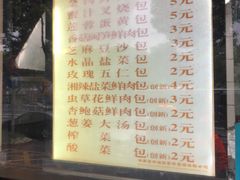 叉烧包 5元
莲蓉蛋黄包 5元
香菇时蔬鲜肉包 3元
芝麻豆沙包 2元
水晶盐菜包 2元
玫瑰五仁包 2元
湘辣盐菜鲜肉包(创新) 4元
虫草花鲜肉包(创新) 3元
杏鲍菇鲜肉包(创新) 3元
葱姜大汤包(创新) 2元
榨菜包(创新) 2元
酸菜包(创新) 2元